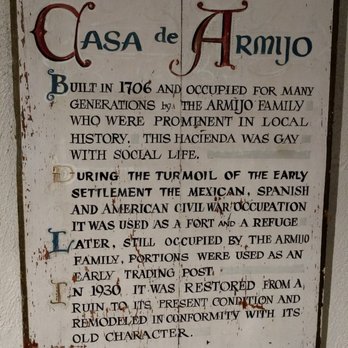 CASA de ARMIJO
BUILT IN 1706 AND OCCUPIED FOR MANY
GENERATIONS by THE ARMIJO FAMILY
WHO WERE PROMINENT IN LOCAL
HISTORY. THIS HACIENDA WAS GAY
WITH SOCIAL LIFE.
DURING THE TURMOIL OF THE EARLY
SETTLEMENT THE MEXICAN, SPANISH
AND AMERICAN CIVIL WAR OCCUPATION
IT WAS USED AS A FORT AND A REFUGE
LATER, STILL OCCUPIED BY THE ARMIJO
FAMILY, PORTIONS WERE USED AS AN
EARLY TRADING POST.
IN 1930 IT WAS RESTORED FROM A
RUIN TO ITS PRESENT CONDITION AND
REMODELED IN CONFORMITY WITH ITS
OLD CHARACTER.